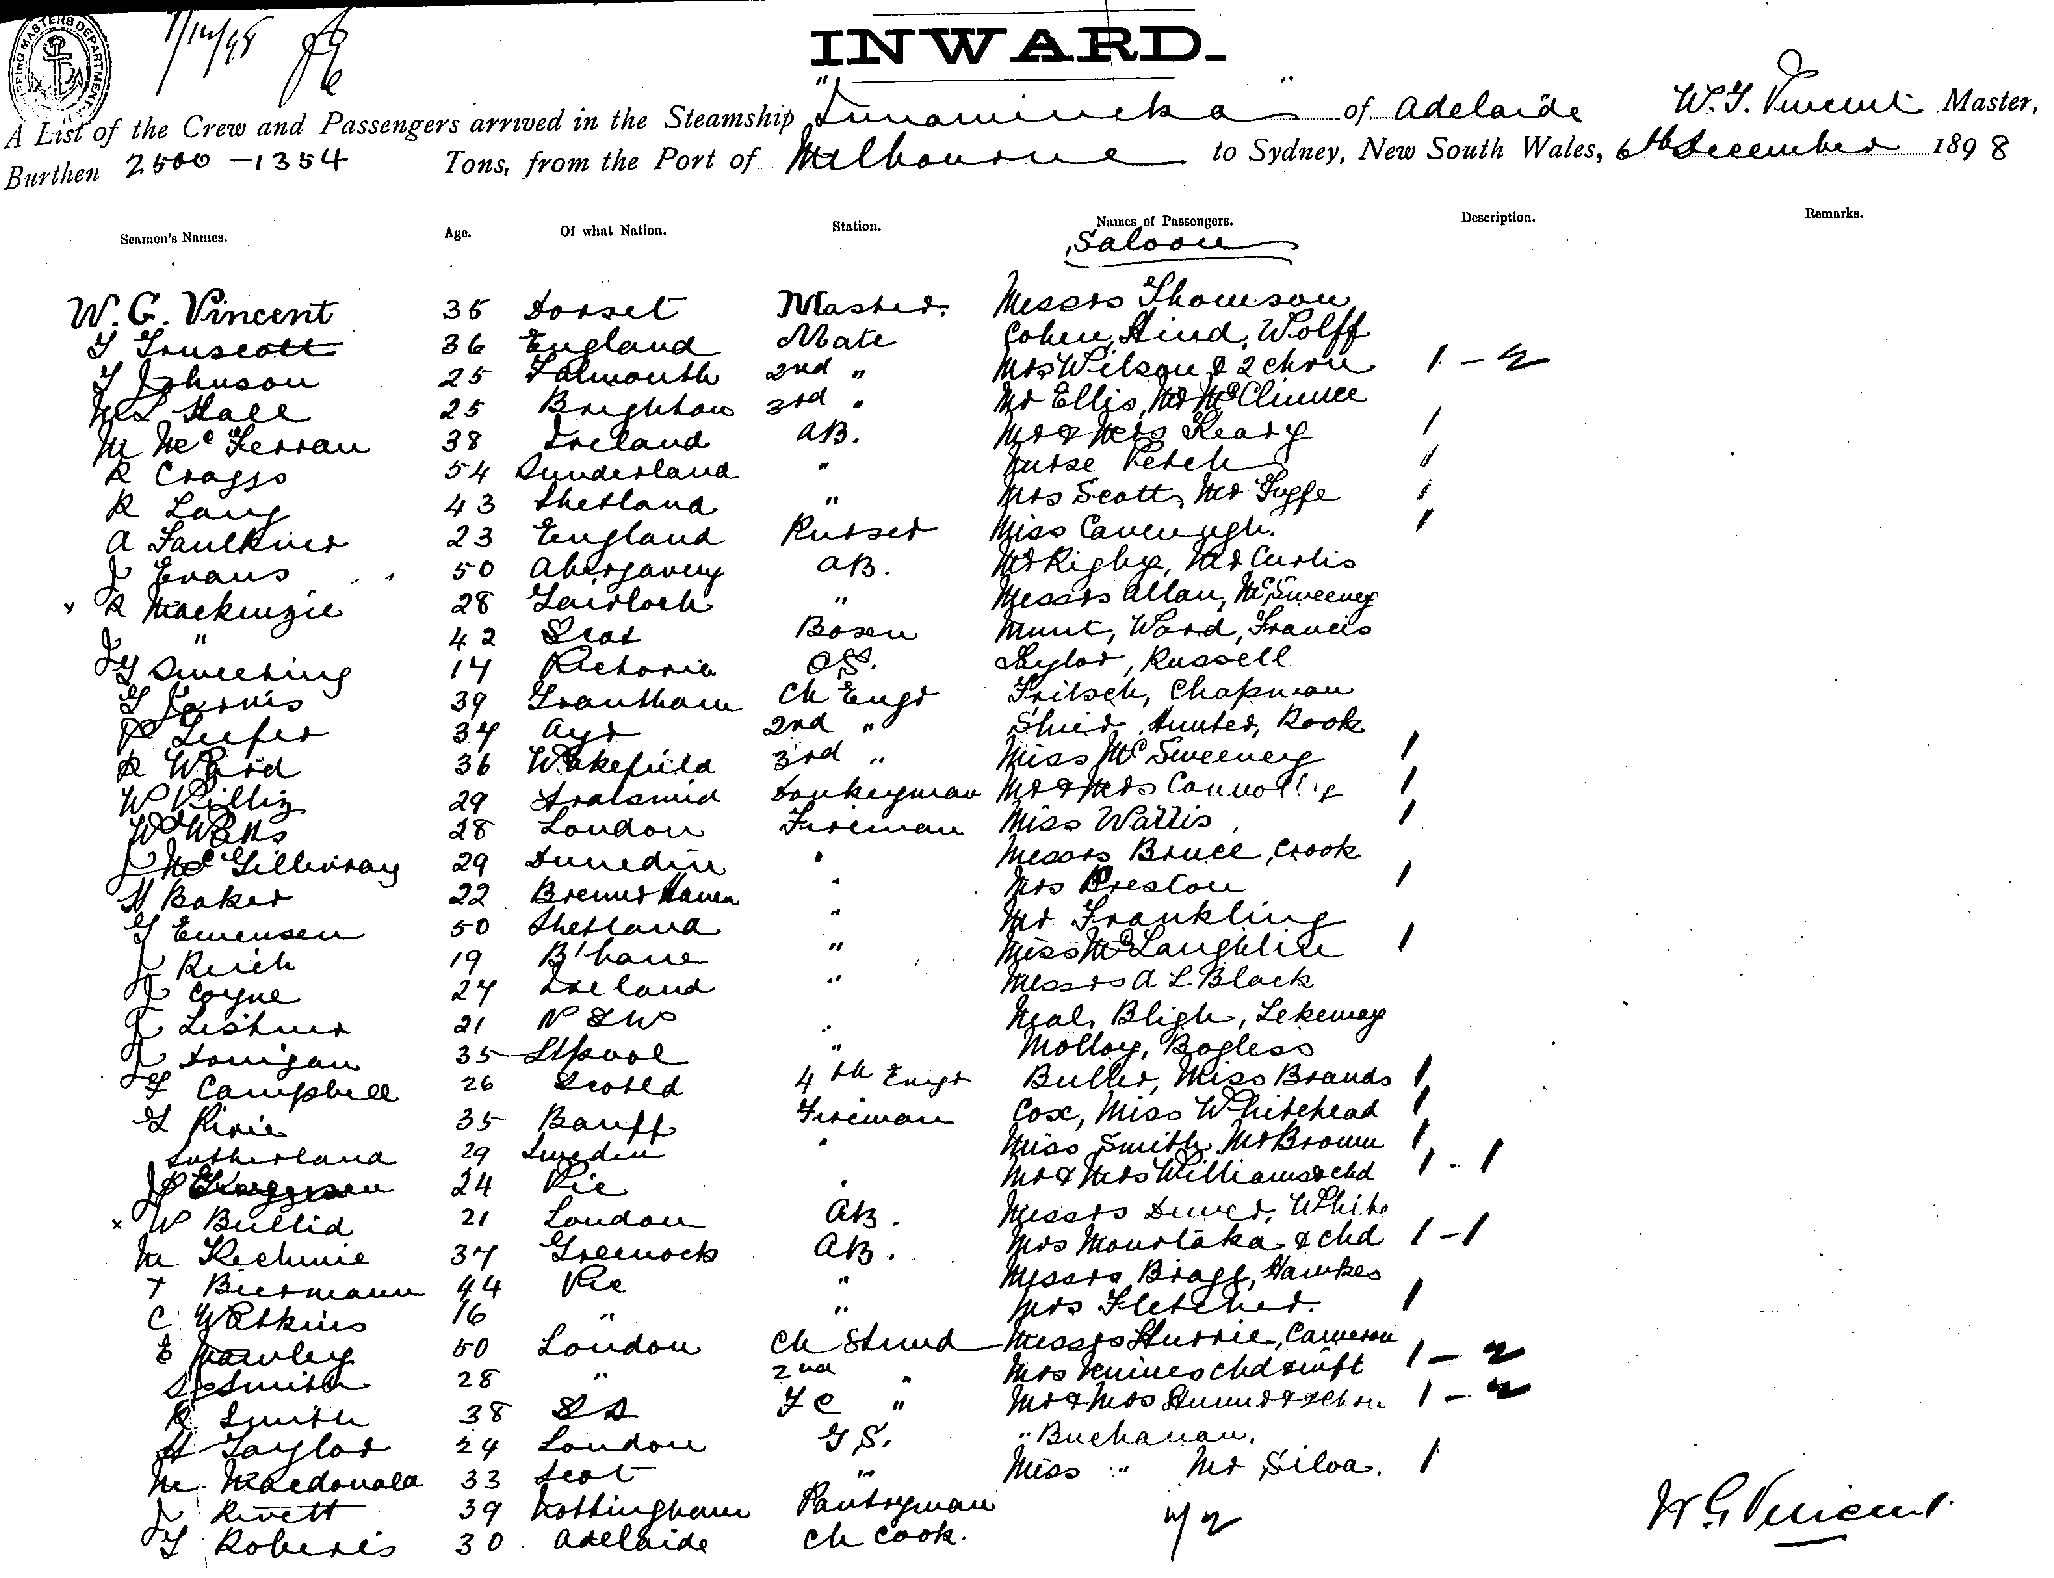 7/12/98
INWARD.
A List of the Crew and Passengers arrived in the Steamship "Innamincka" of Adelaide W. G. Vincent Master,
Burthen 2500 - 1354 Tons, from the Port of Melbourne to Sydney, New South Wales, 6th December 1898
Seamen's Names. Age. Of what Nation. Station. Names of Passengers. Description. Remarks.
Saloon
W. G. Vincent 35 Dorset Master. Messrs Thomson
T Truscott 36 England Mate Cohen, Hind, Wolff
T Johnson 25 Falmouth 2nd " Mrs Wilson & 2 chrn 1 - 2
Hall 25 Brighton 3rd " Mr Ellis, Mr
M McFerran 38 Ireland AB. Mr & Mrs Keary 1
R Craggs 54 Sunderland " Nurse Petch 1
R Lang 43 Shetland " Mrs Scott, Mr 1
A Faulkner 23 England Purser Miss Cavenugh. 1
J Evans 50 Abergaveny AB. Mr Rigby, Mr Curtis
x R Mackenzie 28 Gairloch " Messrs Allan, McSweeney
J " 42 Scot Bosen Munt, Ward, Francis
Sweeting 14 Victoria OS. Taylor, Russell
G Jarvis 39 Grantham Ch Engr Fritsch, Chapman
Leifer 34 Ayr 2nd " Shier, Hunter, Rook
R Ward 36 Wakefield 3rd " Miss McSweeney 1
W 29 Donkeyman Mr & Mrs Connolly 1
W Watts 28 London Fireman Miss Wattis 1
J McGillivray 29 Dunedin " Messrs Bruce, Crook
H Baker 22 Bremerhaven " Mrs Preston 1
G Emensen 50 Shetland " Mr Frankling
J 19 B'bane " Miss McLaughlin 1
J Coyne 24 Ireland " Messrs A L Black
J 21 N S W " Neal, Bligh,
J Donigan 35 L'pool " Molloy, Bayless
F Campbell 26 Scotld 4th Engr Butler, Miss Brands 1
G Pirie 35 Banff Fireman Cox, Miss Whitehead 1
Sutherland 29 Sweden " Miss Smith, Mr Brown 1
24 Vic " Mr & Mrs Williams & chd 1 - 1
x W Bullid 21 London AB. Messrs White
M Kechnie 34 Greenock AB. Mrs Mourtaka & chd 1 - 1
Biermann 44 Vic " Messrs Bragg, Hawkes
C Watkins 16 " " Mrs Fletcher. 1
E Hawley 50 London Ch Stewd Messrs Hurrie, Cameron
Smith 28 " 2nd " Mrs chd & inft 1 - 2
R Smith 38 SA FC " Mr & Mrs 1 - 2
H Taylor 24 London G S. " Buchanan.
M Macdonald 33 Scot " Miss " Mr Silva. 1
J Rivett 39 Nottingham Pantryman
T Roberts 30 Adelaide Ch Cook.
W G Vincent